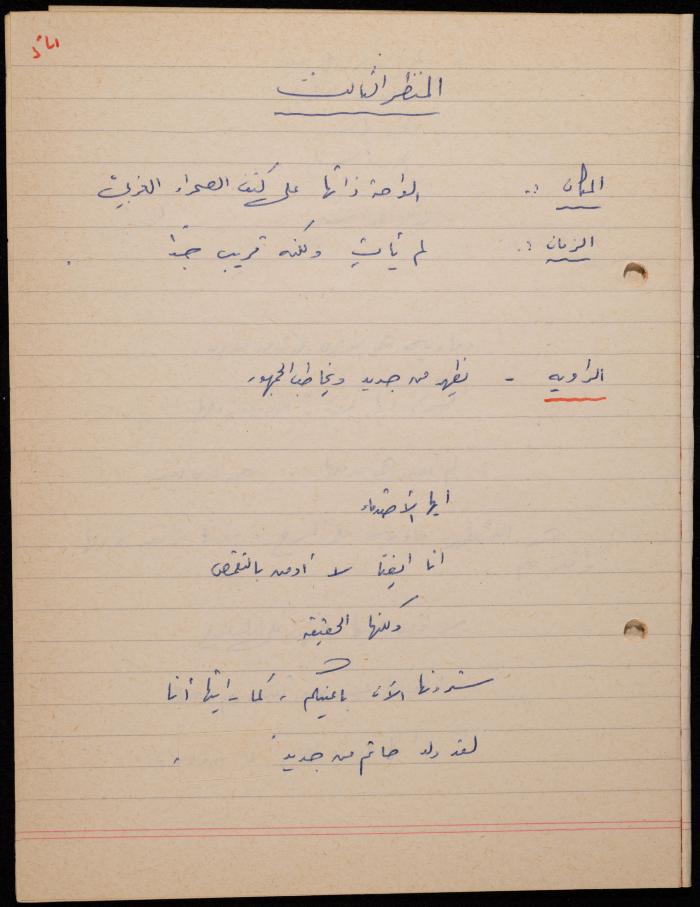 المنظر الثالث
المكان :. الواحة ذاتها على كتف الصحراء الغربية
الزمان :. لم يأتِ ولكنه قريب جدًا .
الراوية - تظهر من جديد وتخاطب الجمهور
أيها الأصدقاء
انا ايضًا لا أومن بالتقمص
ولكنها الحقيقة
سترونها الآن بأعينكم ، كما رايتها أنا
لقد ولد حاتم من جديد .